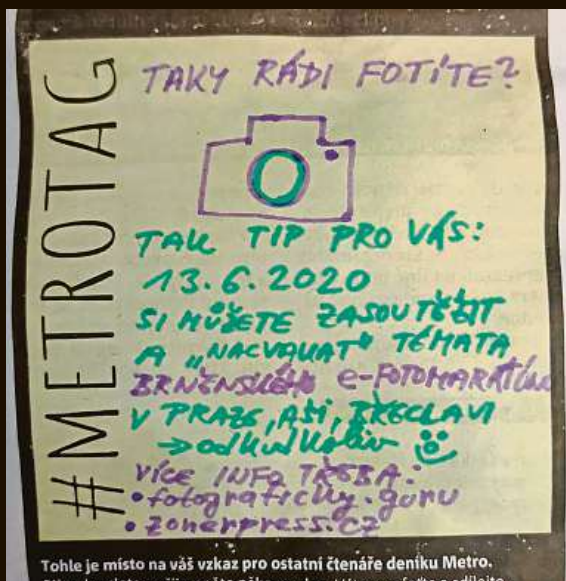 #METROTAG
TAKY RÁDI FOTÍTE?
TAK TIP PRO VÁS:
13.6.2020
SI MŮŽETE ZASOUTĚŽIT
A „NACVAKAT" TÉMATA
BRNĚNSKÉHO e-FOTOMARATÓNU
V PRAZE, AŠI, BŘECLAVI
→ odkudkoliv
VÍCE INFO TŘEBA:
• fotograficky.guru
• zonerpress.cz
Tohle je místo na váš vzkaz pro ostatní čtenáře deníku Metro.